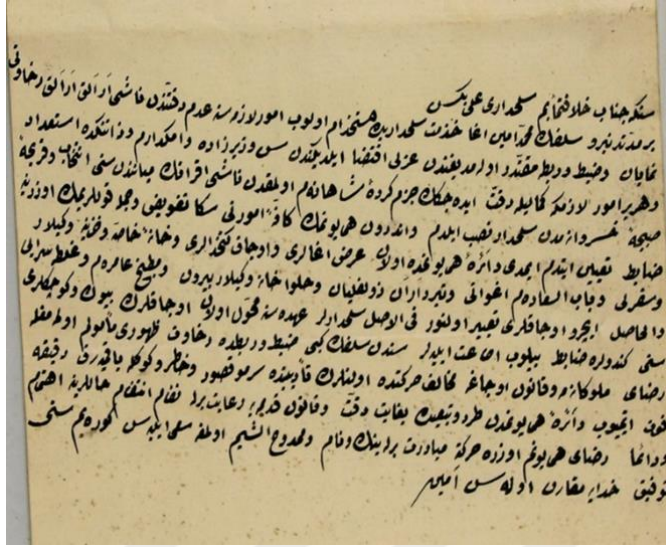 سنكه جناب خلافتمآبم سلحداری علی بكسن
بر مدتدنبرو سلفك محمد امين اغا خدمت سلحداريده مستخدم اولوب امور لازمه سنه عدم دقتندن ناشی آرالق آرالق رخاوتی
نمايان وضبط وربطه مقتدر اولمديغندن عزلی اقتضا ايلديكندن سن وزيرزاده وامكدارم وذاتكده استعداد
وهر بر امور لازمه كماليله دقت ايده جكك جزم كرده شاهانه م اولمقدن ناشی اقرانك مياننده سنی انتخاب وقريحه
صبيحه خسروانه مدن سلحدار نصب ايلدم واندرون همايونمك كافه امورنی سكا تفويض وجمله قوللريمك اوزرينه
ضابط تعيين ايتدم ايمدی دائره همايونمده اولان عرض اغالری واوجاق كتخدالری وخانه خاصه وخزينه وكيلار
وسفرلی وباب السعاده م اغواتی وتبرداران زولفليان وحلواخانه وكيلار بيرون ومطبخ عامره م وغلطه سرايی
والحاصل ايچرو اوجاقلری تعبير اولنور فی الاصل سلحدارلر عهده سنه محول اولان اوجاقلرك بيوك وكوچكلری
سنی كندولره ضابط بيلوب اطاعت ايدلر سندن سلفك كبی ضبط وربطده رخاوت ظهوری مأمولم اولمامغله
رضای ملوكانه م وقانون اوجاغه مخالف حركتده اولنلرك تأديبنده سرمو قصور وخاطر وكوكله باقميه رق دقيقه
فوت ايتميوب دائره همايونمدن طرد وتبعيده بغايت دقت وقانون قديمه رعايت برله نظام انتظام حاللرينه اهتمام
ودائما رضای همايونم اوزره حركته مبادرت برله نيكنام وممدوح الشيم اولمغه سعی ايده سن كوره يم سنی
توفيق خدايه مقارن اوله سن آمين